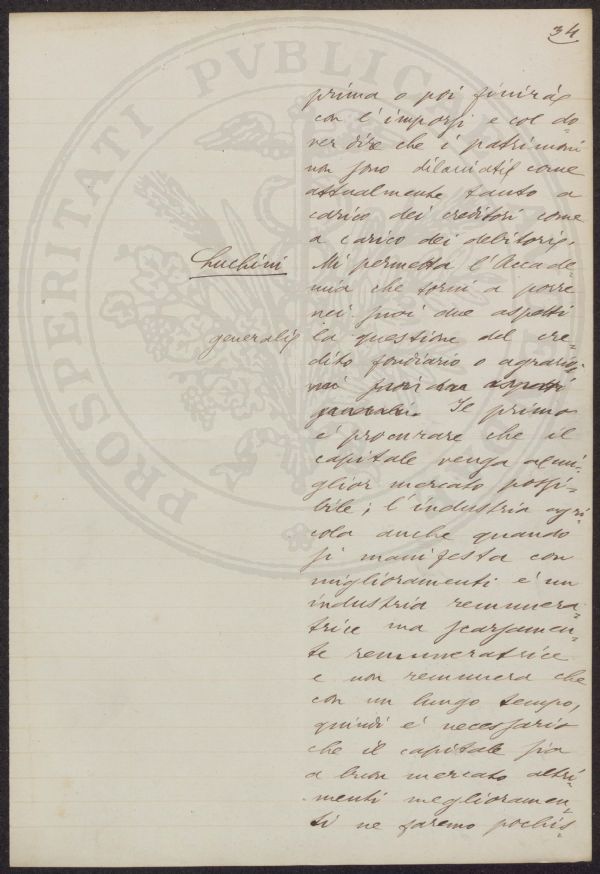 34
prima o poi finirà
con l'imporsi e col do-
ver dire che i patrimoni
non sono dilaniati come
attualmente tanto a
carico dei creditori come
a carico dei debitori.
Luchini
Mi permetta l'Accade-
mia che torni a porre
nei suoi due aspetti
generali
la questione del cre-
dito fondiario o agrario
nei suoi due aspetti
generali. Il primo
è procurare che il
capitale venga al mi-
glior mercato possi-
bile; l'industria agri-
cola anche quando
si manifesta con
miglioramenti è un
industria remunera-
trice ma scarsamen-
te remuneratrice
e non remunera che
con un lungo tempo,
quindi è necessario
che il capitale sia
a buon mercato altri-
menti miglioramen-
ti ne faremo pochis-
PROSPERITATI PVBLICAE